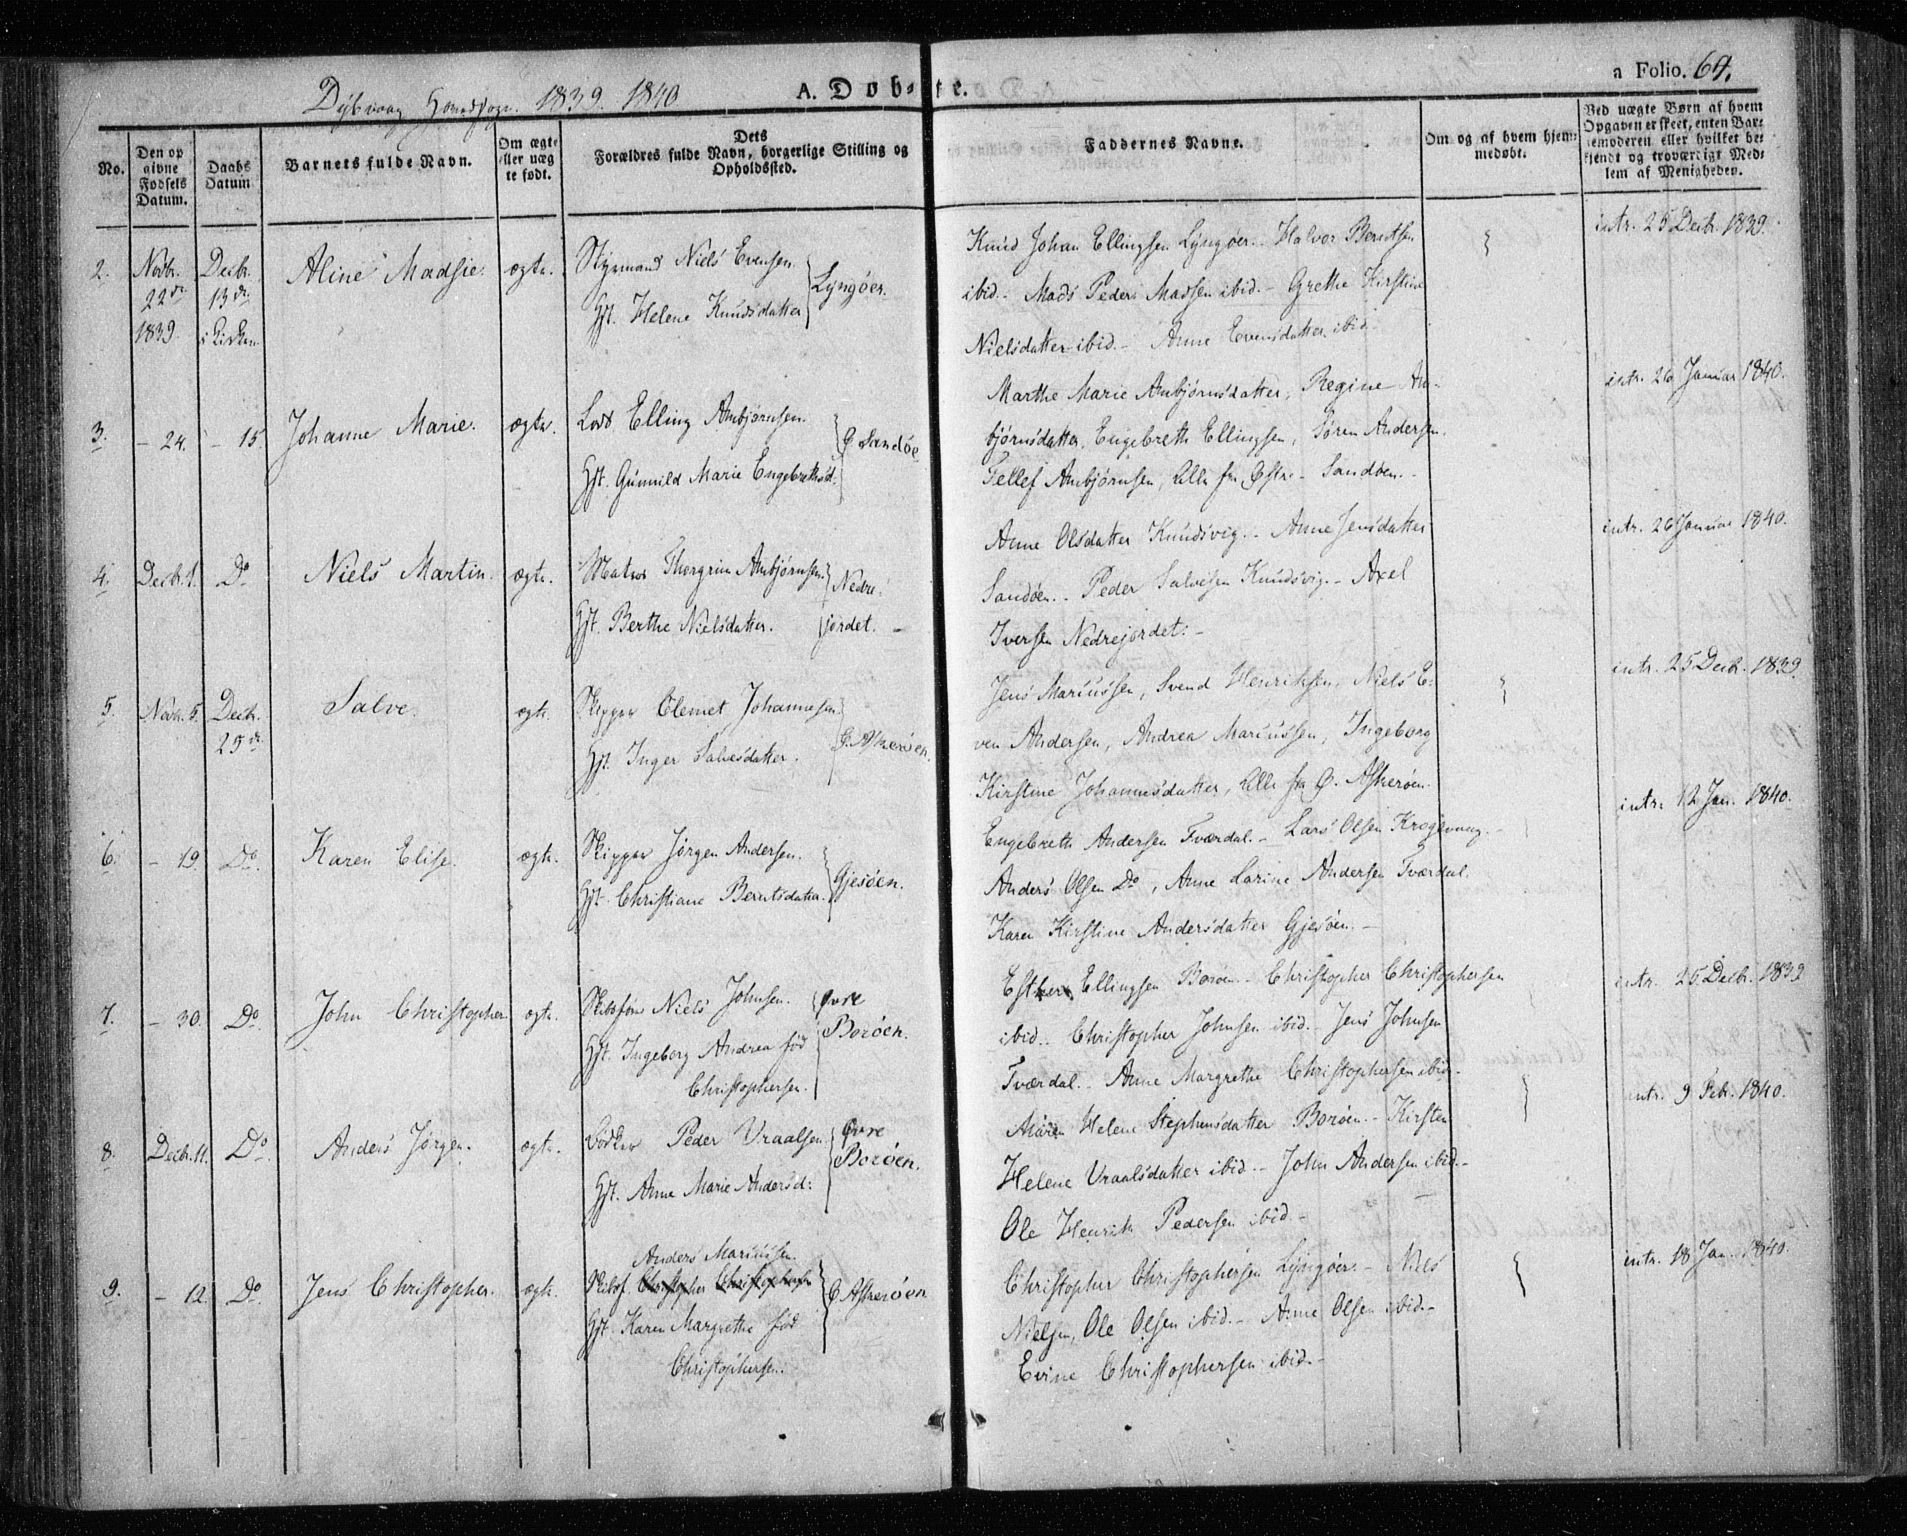 Dybvaag Hovedsogn. 1839. 1840
A. Døbte.
a Folio. 64.
No.
Den op
givne
Fødsels
Datum.
Daabs
Datum
Barnets fulde Navn.
Om ægte
eller uæg
te født.
Dets
Forældres fulde Navn, borgerlige Stilling og
Opholdssted.
Faddernes Navne.
Om og af hvem hjem
medøbt.
Ved uægte Børn af hvem
Opgaven er skeet, enten Bar-
nemoderen eller hvilket be-
kjendt og troværdigt Med-
lem af Menigheden.
2. Novbr. 22de 1839. Decbr. 13de i Kirken
Aline Madsie. ægte.
Styrmand Niels Evensen.
Hst. Helene Knudsdatter
Lyngøer.
Knud Johan Ellingsen Lyngøer. - Halvor Berntsen
ibid. - Mads Peder Madsen ibid. - Grethe Kirstine
Nielsdatter ibid. - Anne Evensdatter ibid.
intr. 25 Decbr. 1839.
3. - 24. - 15. Johanne Marie. ægte.
Lods Elling Ambjørnsen.
Hst. Gunnild Marie Engebrethsd.
Ø Sandøe
Marthe Marie Ambjørnsdatter, Regine Am-
bjørnsdatter, Engebreth Ellingsen, Søren Andersen.
Tellef Ambjørnsen, Alle fra Østre - Sandøen. -
intr. 26 Januar 1840.
4. Decbr. 1. Do Niels Martin. ægte.
Matros Thorgrim Ambjørnsen.
Hst. Berthe Nielsdatter.
Nedre
jordet. -
Anne Olsdatter Knudsvig. - Anne Jensdatter
Sandøen. - Peder Salvesen Knudsvig. - Axel
Iversen Nedrejordet. -
intr. 26 Januar 1840.
5. Novbr. 5. Decbr. 25de Salve. ægte.
Skipper Clemet Johannesen
Hst. Inger Salvesdatter.
Ø. Askerøen.
Jens Mariussen, Svend Henriksen, Niels E-
ven Andersen, Andrea Mariussen, Ingeborg
Kirstine Johannesdatter, Alle fra Ø. Askerøen.
intr. 25 Decb. 1839.
6. - 19. Do. Karen Elise. ægte.
Skipper Jørgen Andersen.
Hst. Christiane Berntsdatter.
Gjesøen.
Engebreth Andersen Tværdal. - Lars Olsen Krogevaag. -
Anders Olsen Do, Anne Larine Andersen Tværdal.
Karen Kirstine Andersdatter Gjesøen. -
intr. 12 Jan. 1840.
7. - 30. Do. John Christopher. ægte.
Niels Johnsen.
Hst. Ingeborg Andrea fød
Christophersen.
Øvre
Borøen.
Ellingsen Borøen. - Christopher Christophersen
ibid. - Christopher Johnsen ibid. - Jens Johnsen
Tværdal. - Anne Margrethe Christophersen ibid. -
intr. 25 Decb. 1839
8. Decbr. 11. Do. Anders Jørgen. ægte.
Peder Vraalsen.
Hst. Anne Marie Andersd:
Øvre
Borøen.
Maren Helene Stephensdatter Borøen. - Kirsten
Helene Vraalsdatter ibid. - John Andersen ibid. -
Ole Henrik Pedersen ibid. -
intr. 9 Feb. 1840.
9. - 12. Do. Jens Christopher. ægte.
Anders Mariussen.
Skibsf. Christopher Christophersen
Hst. Karen Margrethe fød
Christophersen.
Ø Askerøen
Christopher Christophersen Lyngøer. - Niels
Nielsen, Ole Olsen ibid. - Anne Olsen ibid. -
Evine Christophersen ibid. -
intr. 18 Jan. 1840.